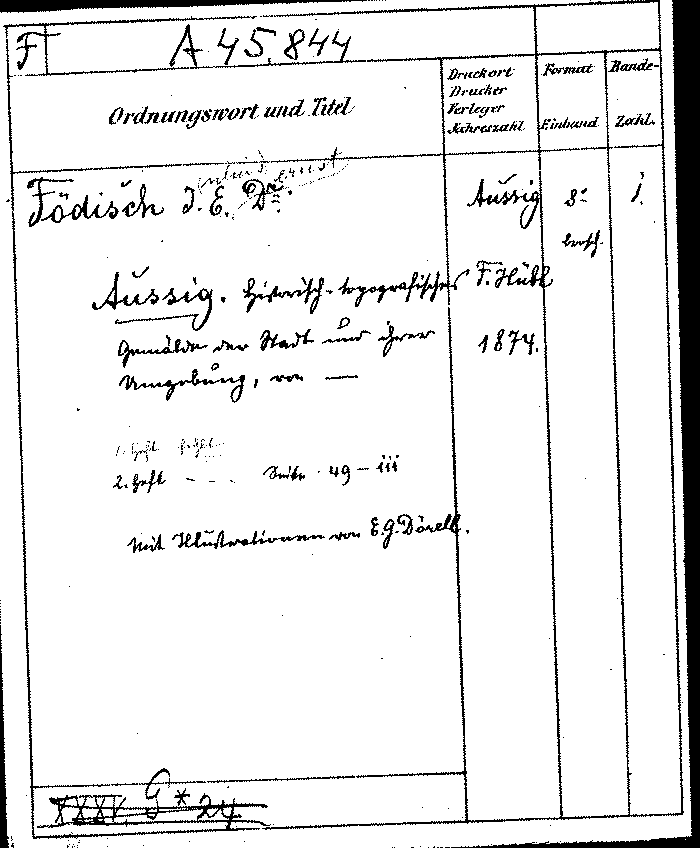 F A 45.844
Ordnungswort und Titel
Druckort
Drucker
Verleger
Jahreszahl
Format
Einband
Bände-
Zahl.
Födisch J. E. Dr.
Aussig 8° 1.
brosch.
Aussig. Historisch-topografisches
F. Hübl
Gemälde der Stadt und ihrer
1874.
Umgebung, von —
1. Heft fehlt
2. Heft - - - Seite 49 – 111
Mit Illustrationen von E.G. Dörell.
XXXV. G * 24